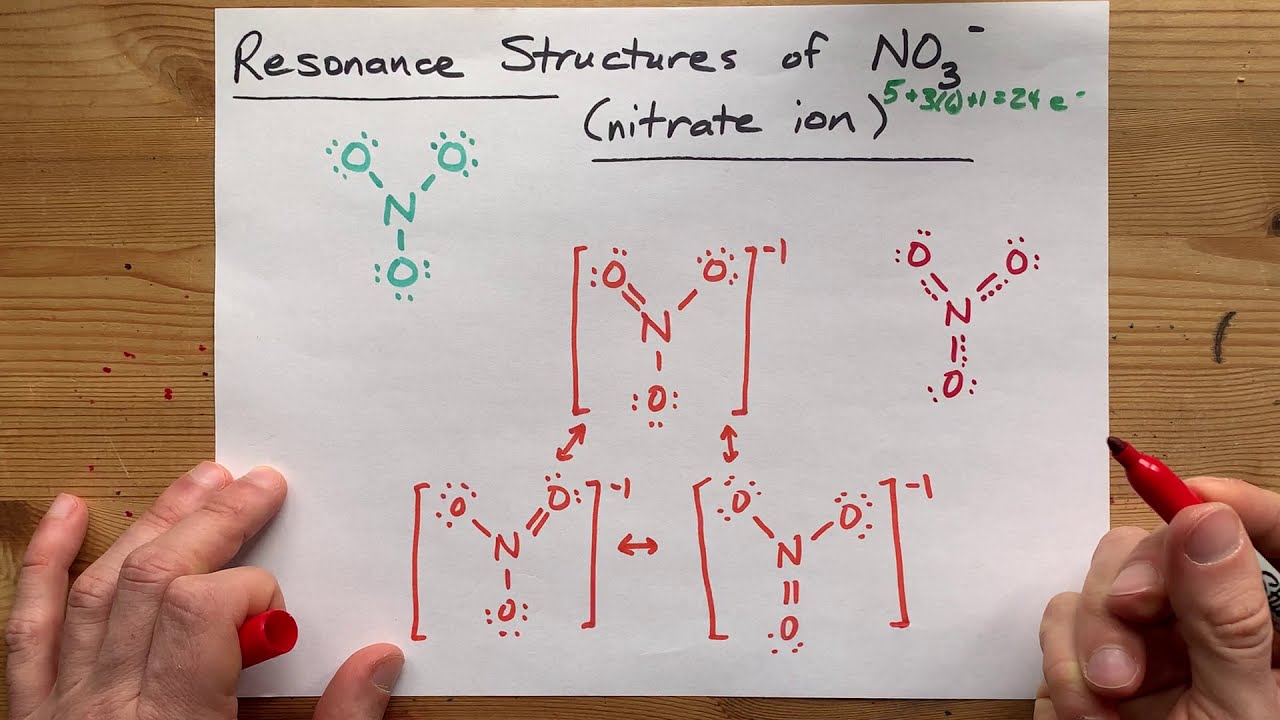 Resonance Structures of NO₃⁻
5+3(6)+1=24 e⁻
(nitrate ion)
O O
N
O
O O
N
O
-1
O O
N
O
O O
N
O
-1
O O
N
O
-1